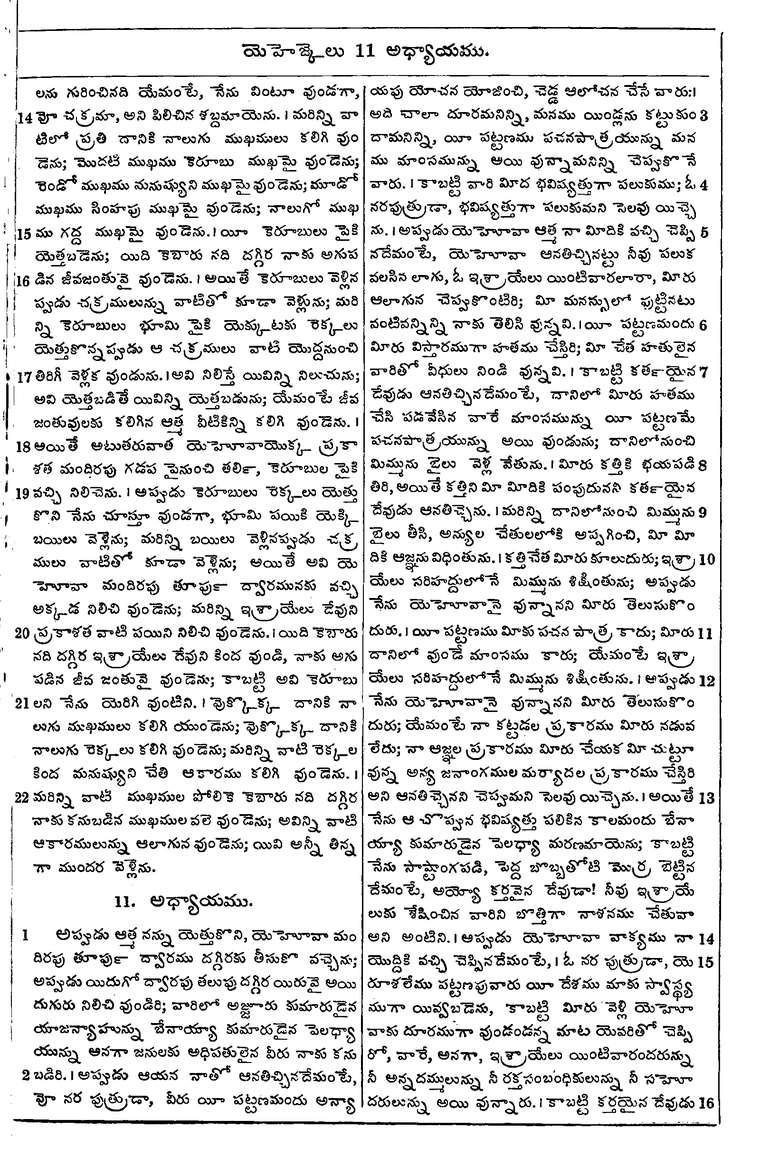 యెహెజ్కేలు 11 అధ్యాయము.
లను గురించినది యేమంటే, నేను వింటూ వుండగా,
14 వో చక్రమా, అని పిలిచిన శబ్దమాయెను. । మరిన్ని వా
టిలో ప్రతి దానికి నాలుగు ముఖములు కలిగి వుం
డెను; మొదటి ముఖము కెరూబు ముఖమై వుండెను;
రెండో ముఖము మనుష్యుని ముఖమై వుండెను; మూడో
ముఖము సింహపు ముఖమై వుండెను; నాలుగో ముఖ
15 ము గద్ద ముఖమై వుండెను. । యీ కెరూబులు పైకి
యెత్తబడెను; యిది కెబారు నది దగ్గిర నాకు అగుప
16 డిన జీవజంతువై వుండెను. । అయితే కెరూబులు వెళ్లిన
ప్పుడు చక్రములున్ను వాటితో కూడా వెళ్లును; మరి
న్ని కెరూబులు భూమి పైకి యెక్కుటకు రెక్కలు
యెత్తుకొన్నప్పుడు ఆ చక్రములు వాటి యొద్దనుంచి
17 తిరిగీ వెళ్లక వుండును. । అవి నిలిస్తే యివిన్ని నిలుచును;
అవి యెత్తబడితే యివిన్ని యెత్తబడును; యేమంటే జీవ
జంతువులకు కలిగిన ఆత్మ వీటికిన్ని కలిగి వుండెను. ।
18 అయితే అటుతరువాత యెహోవాయొక్క ప్రకా
శత మందిరపు గడప పైనుంచి తర్లి, కెరూబుల పైకి
19 వచ్చి నిలిచెను. । అప్పుడు కెరూబులు రెక్కలు యెత్తు
కొని నేను చూస్తూ వుండగా, భూమి పయికి యెక్కి
బయిలు వెళ్లెను; మరిన్ని బయిలు వెళ్లినప్పుడు చక్ర
ములు వాటితో కూడా వెళ్లెను; అయితే అవి యె
హోవా మందిరపు తూర్పు ద్వారమునకు వచ్చి
అక్కడ నిలిచి వుండెను; మరిన్ని ఇశ్రాయేలు దేవుని
20 ప్రకాశత వాటి పయిని నిలిచి వుండెను. । యిది కెబారు
నది దగ్గిర ఇశ్రాయేలు దేవుని కింద వుండి, నాకు అగు
పడిన జీవ జంతువై వుండెను; కాబట్టి అవి కెరూబు
21 లని నేను యెరిగి వుంటిని. । వొక్కొక్క దానికి నా
లుగు ముఖములు కలిగి యుండెను; వొక్కొక్క దానికి
నాలుగు రెక్కలు కలిగి వుండెను; మరిన్ని వాటి రెక్కల
కింద మనుష్యుని చేతి ఆకారము కలిగి వుండెను. ।
22 మరిన్ని వాటి ముఖముల పోలికె కెబారు నది దగ్గిర
నాకు కనుబడిన ముఖముల వలె వుండెను; అవిన్ని వాటి
ఆకారములున్ను ఆలాగున వుండెను; యివి అన్నీ తిన్న
గా ముందర వెళ్లెను.
11. అధ్యాయము.
1 అప్పుడు ఆత్మ నన్ను యెత్తుకొని, యెహోవా మం
దిరపు తూర్పు ద్వారము దగ్గిరకు తీసుకొ వచ్చెను;
అప్పుడు యిదుగో ద్వారపు తలుపు దగ్గిర యిరువై అయి
దుగురు నిలిచి వుండిరి; వారిలో అజ్జూరు కుమారుడైన
యాజన్యాహున్ను బేనాయ్యా కుమారుడైన పెలథ్యా
యున్ను అనగా జనులకు అధిపతులైన వీరు నాకు కను
2 బడిరి. । అప్పుడు ఆయన నాతో ఆనతిచ్చినదేమంటే,
వో నర పుత్రుడా, వీరు యీ పట్టణమందు అన్యా
యపు యోచన యోజించి, చెడ్డ ఆలోచన చేసే వారు: ।
అది చాలా దూరమనిన్ని, మనము యిండ్లను కట్టుకుం 3
దామనిన్ని, యీ పట్టణము పచనపాత్రయున్ను మన
ము మాంసమున్ను అయి వున్నామనిన్ని చెప్పుకొనే
వారు. । కాబట్టి వారి మీద భవిష్యత్తుగా పలుకుము; ఓ 4
నరపుత్రుడా, భవిష్యత్తుగా పలుకుమని సెలవు యిచ్చె
ను. । అప్పుడు యెహోవా ఆత్మ నా మీదికి వచ్చి చెప్పి 5
నదేమంటే, యెహోవా ఆనతిచ్చినట్టు నీవు పలుక
వలసిన లాగు, ఓ ఇశ్రాయేలు యింటివారలారా, మీరు
ఆలాగున చెప్పుకొంటిరి; మీ మనస్సులో పుట్టినటు
వంటివన్నిన్ని నాకు తెలిసి వున్నవి. । యీ పట్టణమందు 6
మీరు విస్తారముగా హతము చేస్తిరి; మీ చేత హతులైన
వారితో వీధులు నిండి వున్నవి. । కాబట్టి కర్తయైన 7
దేవుడు ఆనతిచ్చినదేమంటే, దానిలో మీరు హతము
చేసి పడవేసిన వారే మాంసమున్ను యీ పట్టణమే
పచనపాత్రయున్ను అయి వుండును; దానిలోనుంచి
మిమ్మును బైలు వెళ్ల చేతును. । మీరు కత్తికి భయపడి 8
తిరి, అయితే కత్తిని మీ మీదికి పంపుదునని కర్తయైన
దేవుడు ఆనతిచ్చెను. । మరిన్ని దానిలోనుంచి మిమ్మును 9
బైలు తీసి, అన్యుల చేతులలోకి అప్పగించి, మీ మీ
దికి ఆజ్ఞను విధింతును. । కత్తిచేత మీరు కూలుదురు; ఇశ్రా 10
యేలు సరిహద్దులోనే మిమ్మును శిషింతును; అప్పుడు
నేను యెహోవానై వున్నానని మీరు తెలుసుకొం
దురు. । యీ పట్టణము మీకు పచన పాత్ర కాదు; మీరు 11
దానిలో వుండే మాంసము కారు; యేమంటే ఇశ్రా
యేలు సరిహద్దులోనే మిమ్మును శిషింతును. । అప్పుడు 12
నేను యెహోవానై వున్నానని మీరు తెలుసుకొం
దురు; యేమంటే నా కట్టడల ప్రకారము మీరు నడువ
లేదు; నా ఆజ్ఞల ప్రకారము మీరు చేయక మీ చుట్టూ
వున్న అన్య జనాంగముల మర్యాదల ప్రకారము చేస్తిరి
అని ఆనతిచ్చెనని చెప్పుమని సెలవు యిచ్చెను. । అయితే 13
నేను ఆ చొప్పున భవిష్యత్తు పలికిన కాలమందు బేనా
య్యా కుమారుడైన పెలథ్యా మరణమాయెను; కాబట్టి
నేను సాష్టాంగపడి, పెద్ద బొబ్బతోటి మొర్ర బెట్టిన
దేమంటే, అయ్యో కర్తవైన దేవుడా! నీవు ఇశ్రాయే
లుకు శేషించిన వారిని బొత్తిగా నాశనము చేతువా
అని అంటిని. । అప్పుడు యెహోవా వాక్యము నా 14
యొద్దికి వచ్చి చెప్పినదేమంటే, । ఓ నర పుత్రుడా, యె 15
రూశలేము పట్టణపువారు యీ దేశము మాకు స్వాస్థ్య
ముగా యివ్వబడెను, కాబట్టి మీరు వెళ్లి యెహో
వాకు దూరముగా వుండండన్న మాట యెవరితో చెప్పి
రో, వారే, అనగా, ఇశ్రాయేలు యింటివారందరున్ను
నీ అన్నదమ్ములున్ను నీ రక్తసంబంధికులున్ను నీ సహో
దరులున్ను అయి వున్నారు. । కాబట్టి కర్తయైన దేవుడు 16